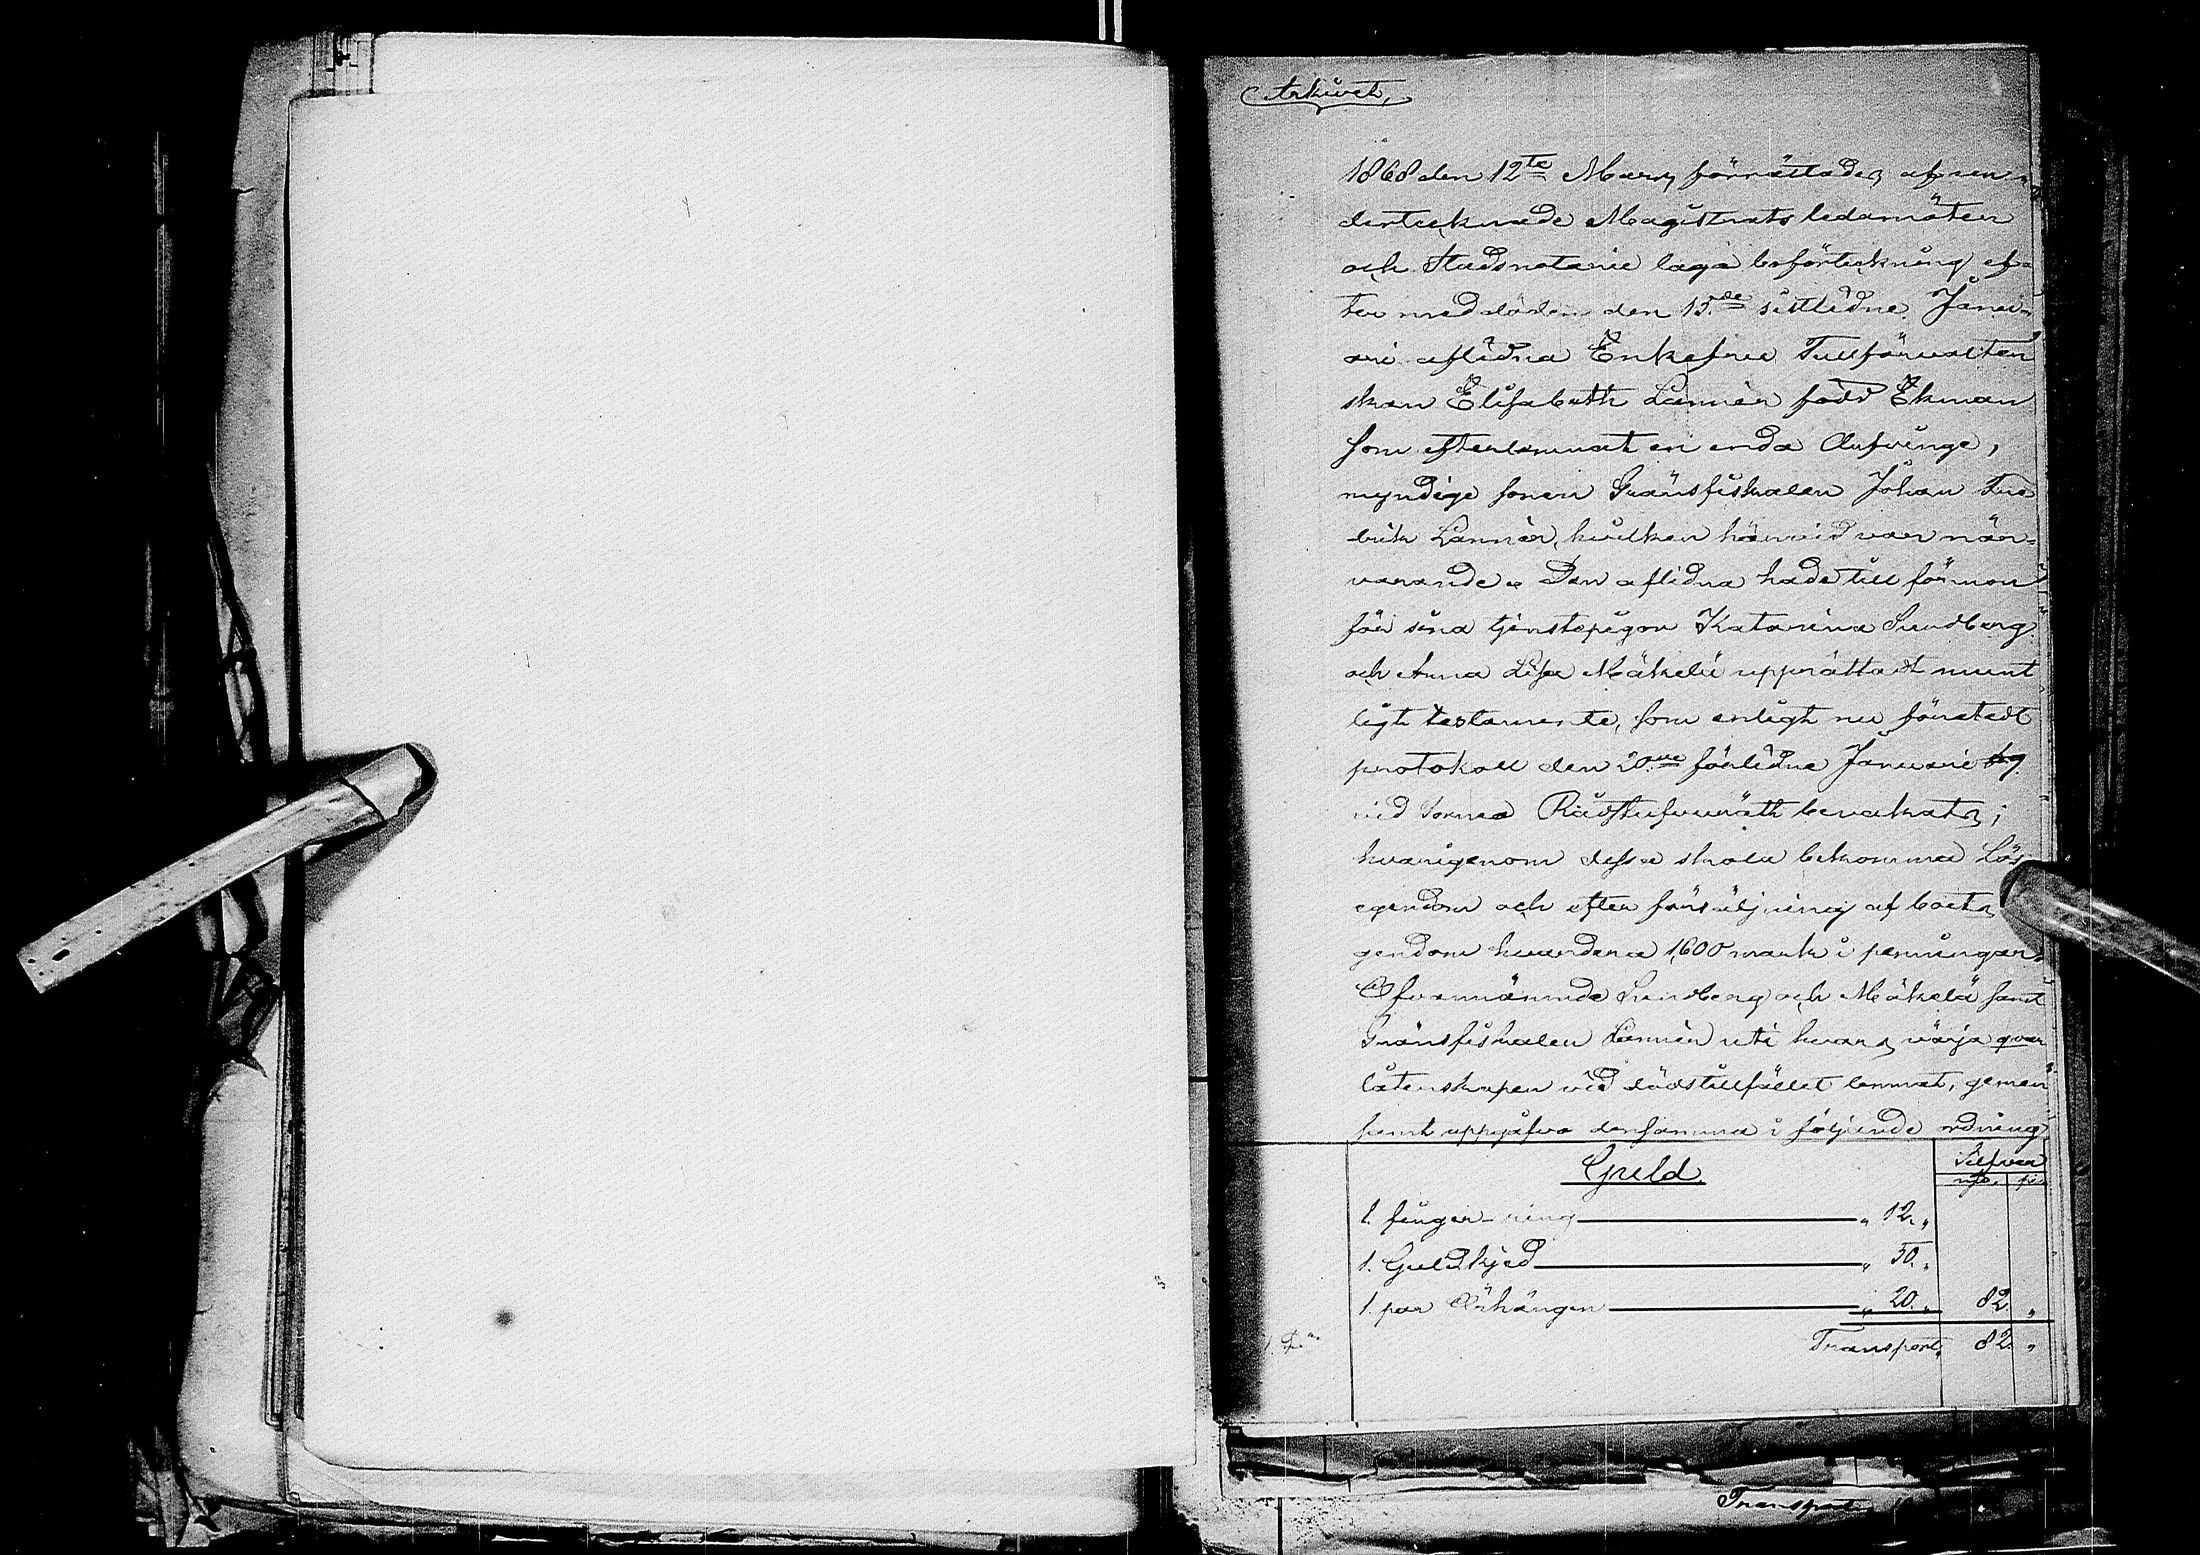 Arkivet,
1868 den 12te Mars, förrättades af un-
dertecknade Magistrats ledamöter
och Stadsnotarie laga boförteckning ef-
ter med döden den 15de sistledne Janu-
ari aflidna Enkefru Tullförvaltar-
skan Elisabeth Lannér född Ekman
som efterlemnat en enda Arfvinge,
myndige sonen Gränsfiskalen Johan Fre
drik Lannér, hvilken härvid var när-
varande. Den aflidna hade till förmon
för sina tjenstepigor Katarina Sundberg
och Anna Lisa Mäkelä upprättadt munt
ligt testamente, som enligt nu företedt
protokoll den 20de förlidne Januarii
vid Torneå Rådstufvurätt bevakats;
hvarigenom dessa skola bekomma lös
egendom och efter försäljning af boets
gendom hvardera 1,600 mark i penningar.
Ofvannämnde Sundberg och Mäkelä samt
Gränsfiskalen Lannér uti hvars värja qvar
låtenskapen vid dödstillfället lemnat, gemen
samt uppgåfvo densamma i följande ordning
Silfver
Guld
mk. pi
1. finger-ring " 12. "
1. Guldkjed " 50. "
1. par Örhängen " 20. " 82. "
Transport, 82. "
Transport